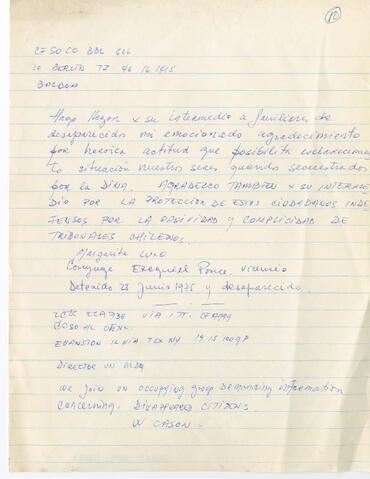 10
CESOCO BDL 606
10 BERLIN TZ 46 16 1415
BALBOA
Hago llegar x su intermedio a familiares de
desaparecidos mi emocionado agradecimiento
por heroica actitud que posibilita esclarecimien
to situación nuestros seres queridos secuestrados
por la DINA. AGRADEZCO TAMBIEN x SU INTERME
DIO POR LA PROTECCION DE ESTOS CIUDADANOS INDE
FENSOS POR LA PASIVIDAD Y COMPLICIDAD DE
TRIBUNALES CHILENOS.
Margarita
Conyuge Exequiel Ponce Vicencio
Detenido 28 Junio 1975 y desaparecido.
VIA ITT
EVANSTON IL VIA TCX NY 1915
DIRECTOR UN
We join on occupying group demanding information
concerning. DISAPPEARED CITIZENS.
W CASON